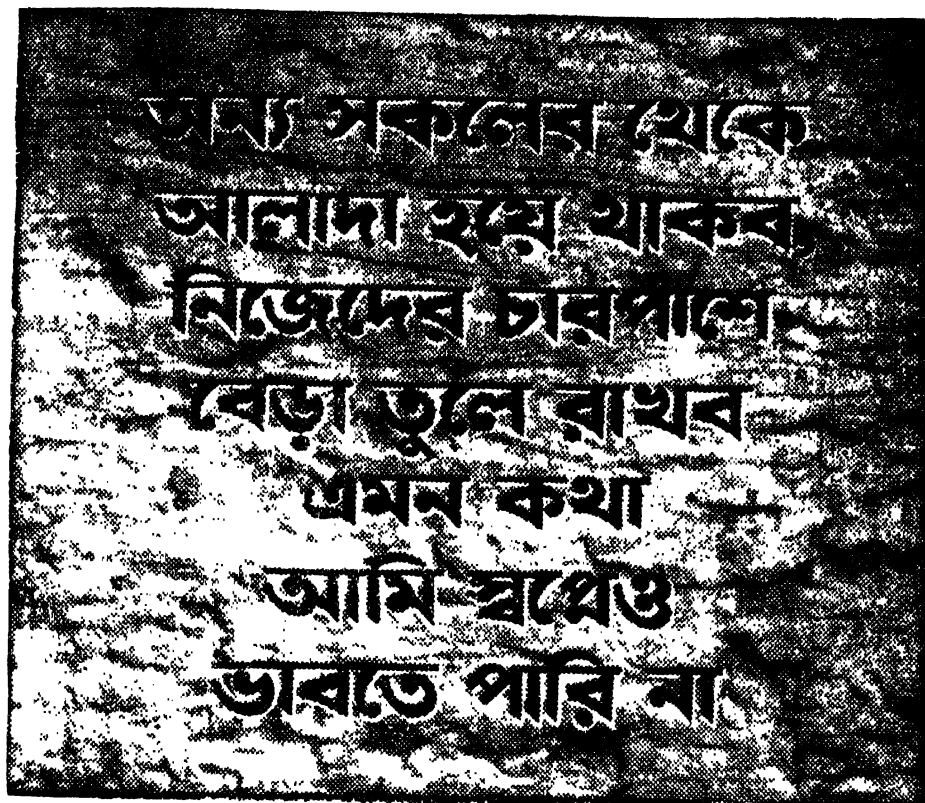 অন্য সকলের থেকে
আলাদা হয়ে থাকব
নিজেদের চারপাশে
বেড়া তুলে রাখব
এমন কথা
আমি স্বপ্নেও
ভাবতে পারি না